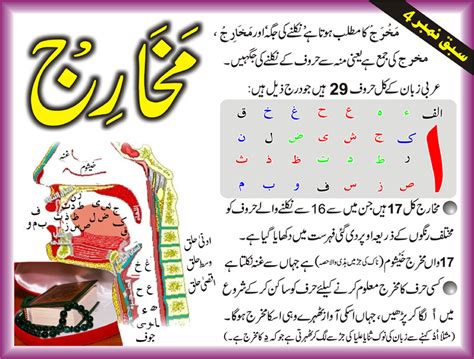 سبق نمبر 4
مَخَارِجْ
مَخْرَجْ کا مطلب ہوتا ہے نکلنے کی جگہ اور مَخَارِجْ،
مخرج کی جمع ہے یعنی منہ سے حروف کے نکلنے کی جگہیں۔
عربی زبان کے کل حروف 29 ہیں جو درج ذیل ہیں:
الف ء ہ ع ح غ خ ق
ا ک ج ش ی ض ل ن
ر ط د ت ظ ذ ث
ص ز س ف و ب م
مخارج کل 17 ہیں جن میں سے 16 سے نکلنے والے حروف کو
مختلف رنگوں کے ذریعہ اوپر دی گئی فہرست میں دکھایا گیا ہے۔
17واں مخرج خَیْشُوم (ناک کی جڑ میں ہڈی والا حصہ) ہے جہاں سے غنہ نکلتا ہے
کسی حرف کا مخرج معلوم کرنے کیلئے حرف کو ساکن کر کے شروع
میں اَ لگا کر پڑھیں، جہاں اسکی آواز ٹھہرے وہی اسکا مخرج ہوگا۔
غنہ
خیشوم
ج ش ی
ض ل ن
ط د ت
ظ ذ ث
ص ز س
ف
و ب م
ق
ک
غ خ
ع ح
ء ہ
ادنیٰ حلق
وسط حلق
اقصیٰ حلق
جوف